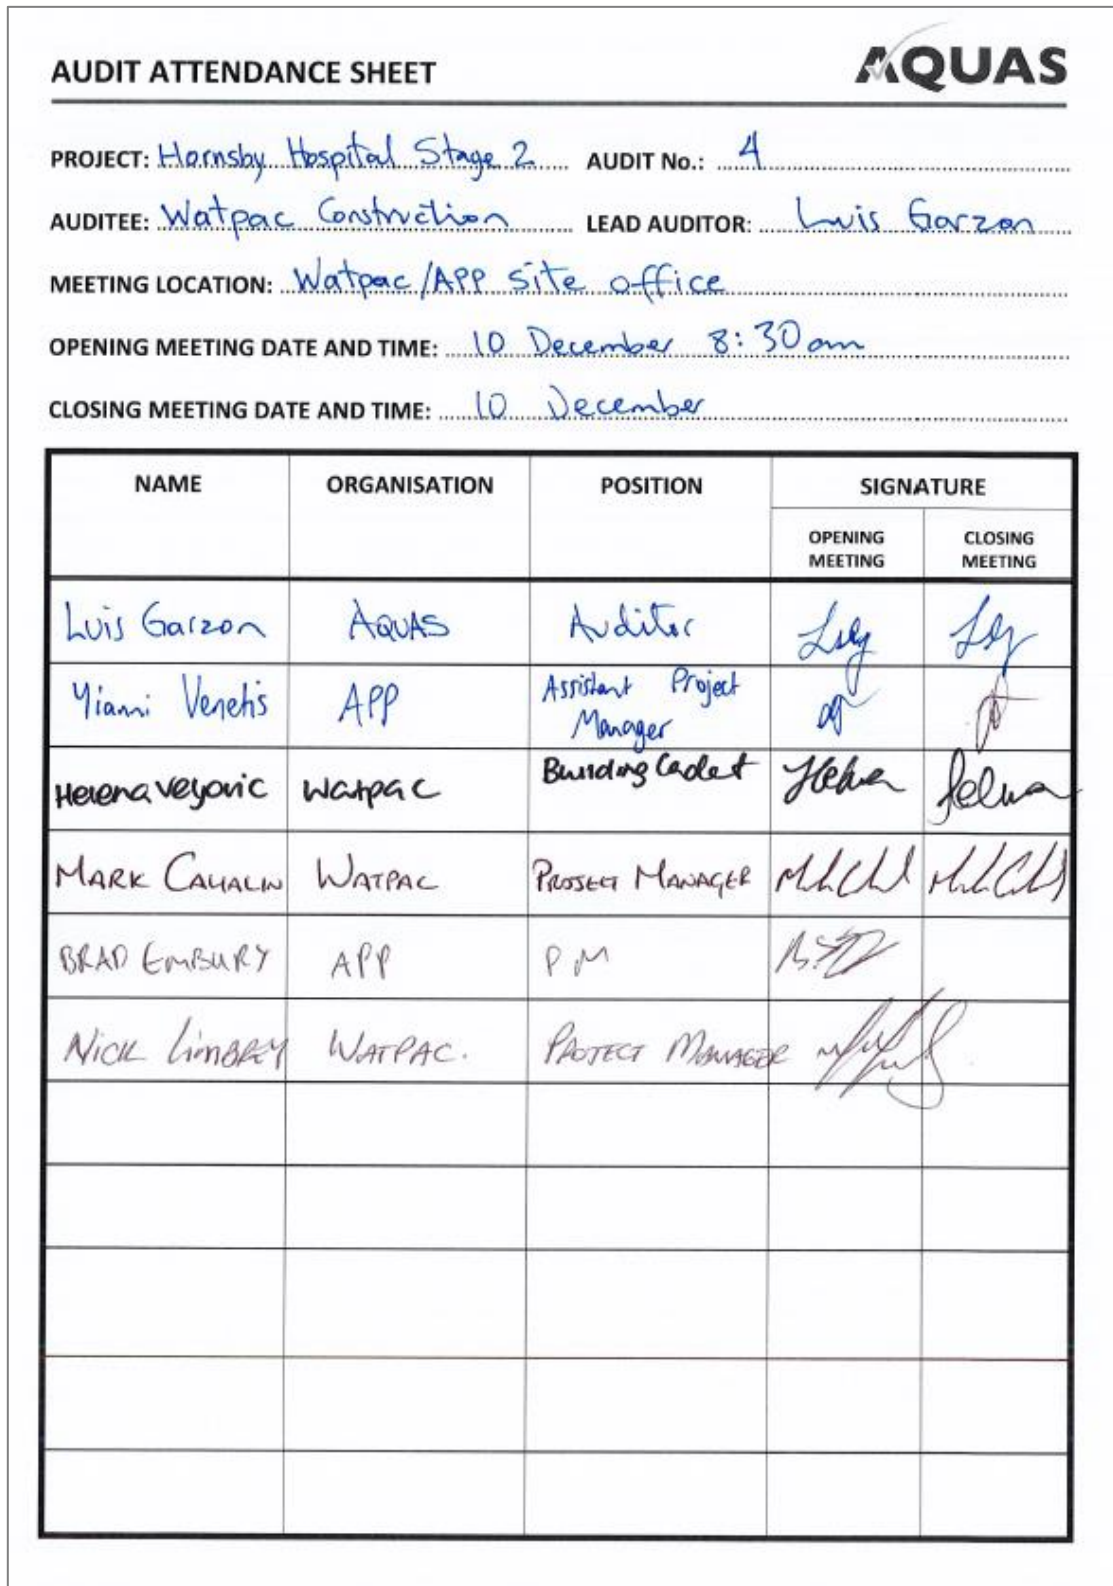 AUDIT ATTENDANCE SHEET
AQUAS
PROJECT: Hornsby Hospital Stage 2 AUDIT No.: 4
AUDITEE: Watpac Construction LEAD AUDITOR: Luis Garzon
MEETING LOCATION: Watpac/APP site office
OPENING MEETING DATE AND TIME: 10 December 8:30am
CLOSING MEETING DATE AND TIME: 10 December
NAME ORGANISATION POSITION SIGNATURE
OPENING MEETING CLOSING MEETING
Luis Garzon AQUAS Auditor
Yianni Venetis APP Assistant Project
Manager
Helena Vejovic Watpac Building Cadet
MARK CAHALIN WATPAC PROJECT MANAGER
BRAD EMBURY APP PM
NICK LIMBREY WATPAC. PROJECT MANAGER